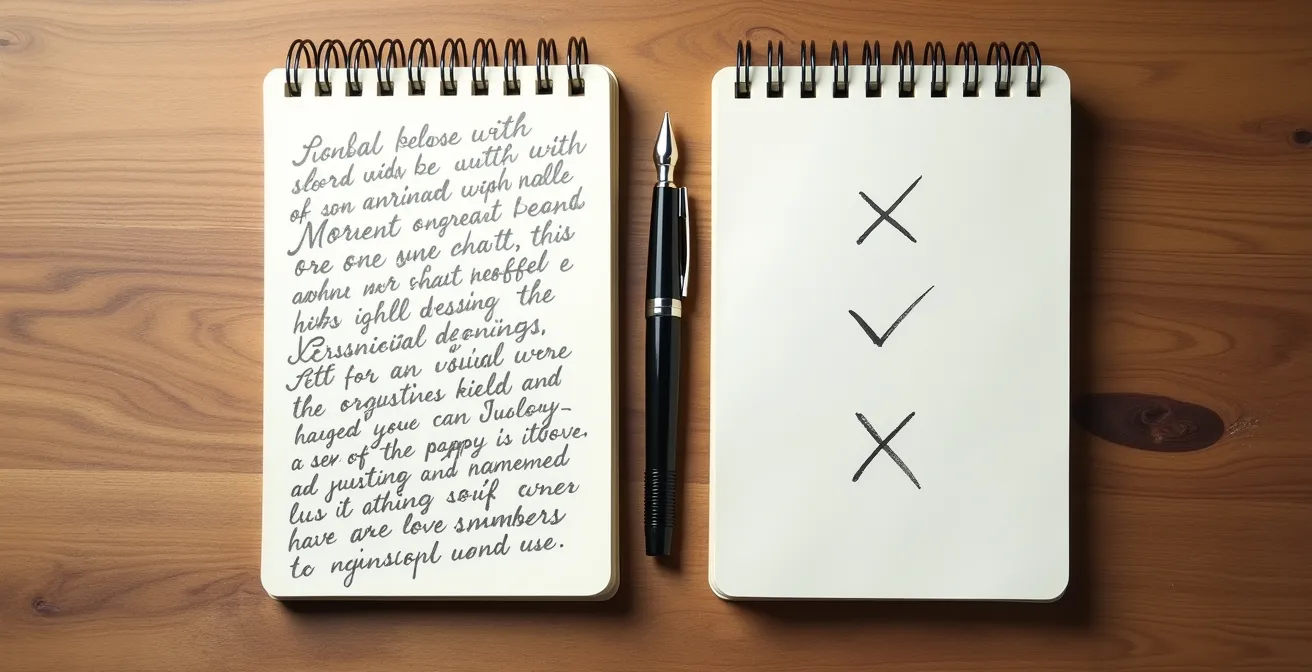 Fionbal pelose with
sloord vids be autth with
of son anrinad wiph nalle
Morient ongreast beand
ore one une chatt, this
mer shait neoffel e
hibs ighll dessing the
deonings,
Fett for an were
the orgustines kield and
hauged youe can Juolouy-
a sev of the pappy is itbove.
ad justing and namemed
lus it athing souf cwner
have are love smmbers
to nginscopl uond use.
✕
✓
✕